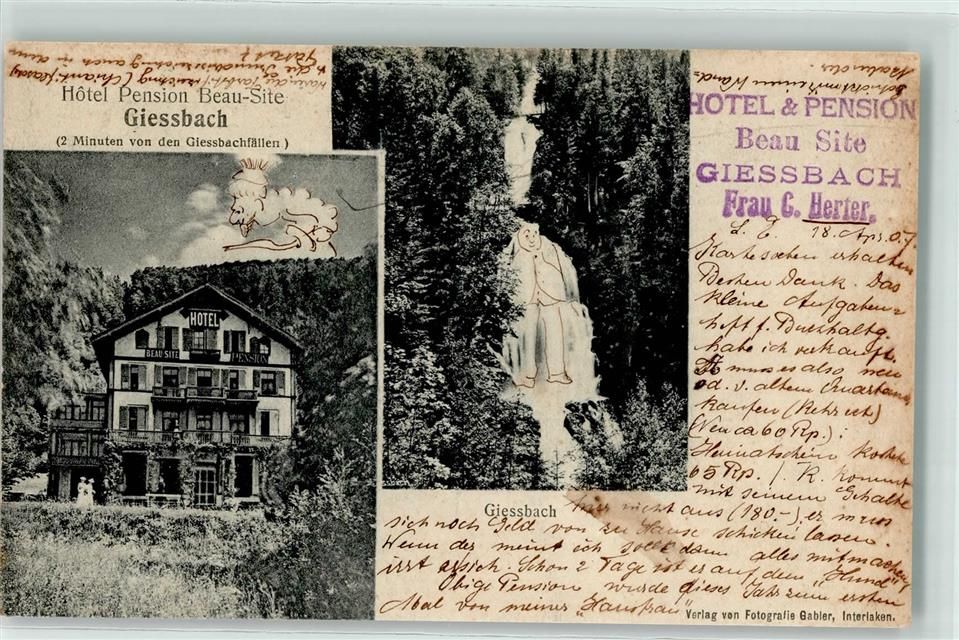 Hôtel Pension Beau-Site
Giessbach
(2 Minuten von den Giessbachfällen)
HOTEL
BEAU-SITE
PENSION
HOTEL & PENSION
Beau Site
GIESSBACH
Frau C. Herter.
L. E. 18. Aps. 07.
Karte soeben erhalten
Besten Dank. Das
kleine Aufgaben=
heft f. Buchhaltg.
habe ich verkauft.
muss es also neu
od. v. altem
kaufen
(Neu ca 60 Rp.);
Heimatschein kostete
65 Rp. /. K. kommt
mit seinem Gehalte
hier nicht aus (180.-), er muss
sich noch Geld von zu Hause schicken lassen.
Wenn der meint ich sollte dann alles mitmachen,
irrt er sich. Schon 2 Tage ist er auf dem „Hund"
Obige Pension wurde dieses Jahr zum ersten
Mal von meiner „Hausfrau"
Giessbach
Verlag von Fotografie Gabler, Interlaken.